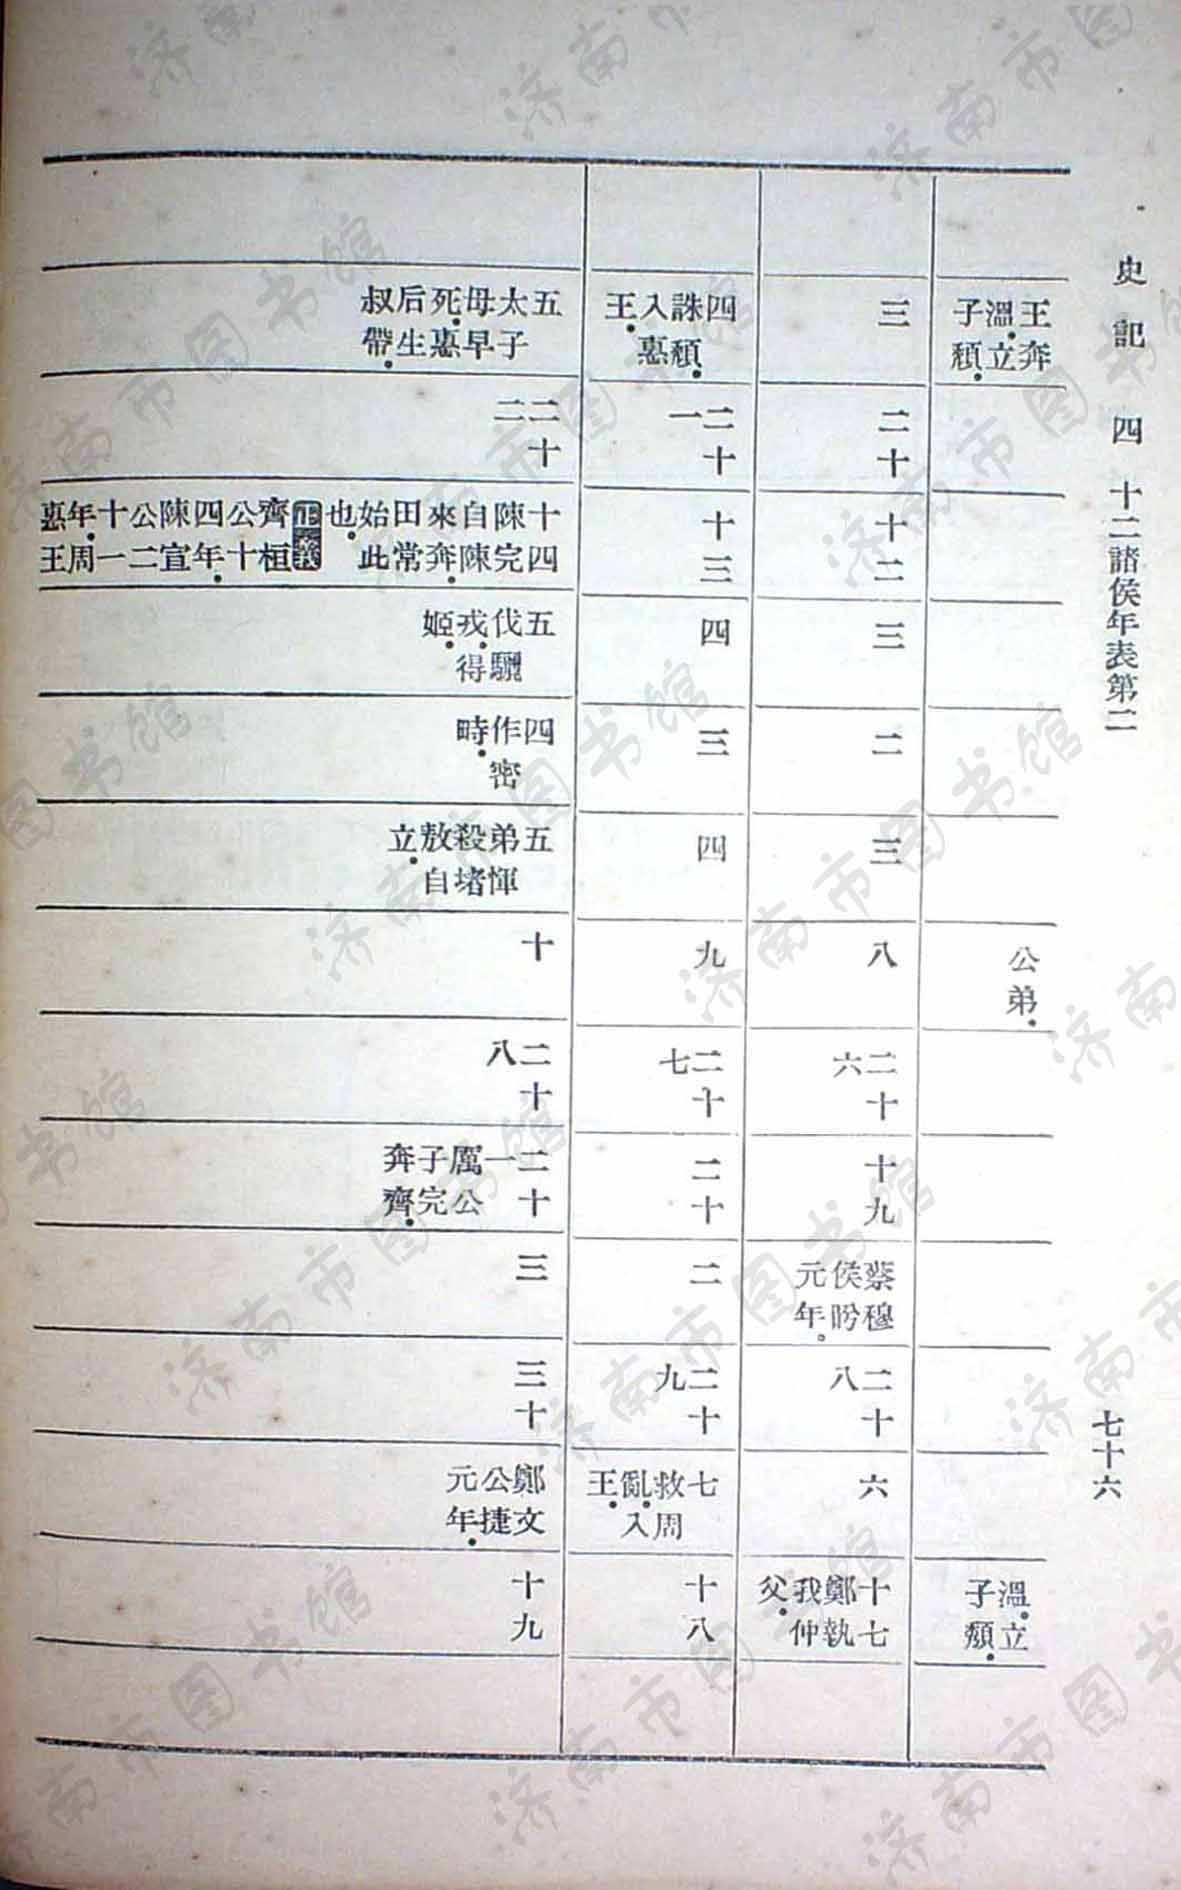 史記 四 十二諸侯年表第二 七十六
王奔溫立子頹
公弟
溫立子頹
三
二十
十二
三
二
三
八
二十六
十九
蔡穆侯肹元年
二十八
六
十七鄭執我仲父
四誅頹入惠王
二十一
十三
四
三
四
九
二十七
二十
二
二十九
七救周亂入王
十八
五太子母早死惠后生叔帶
二十二
十四陳完自陳來奔田常始此也 正義 齊桓公十四年陳宣公二十一年周惠王
五伐驪戎得姬
四作密畤
五弟惲殺堵敖自立
十
二十八
二十一厲公子完奔齊
三
三十
鄭文公捷元年
十九
济南市图书馆